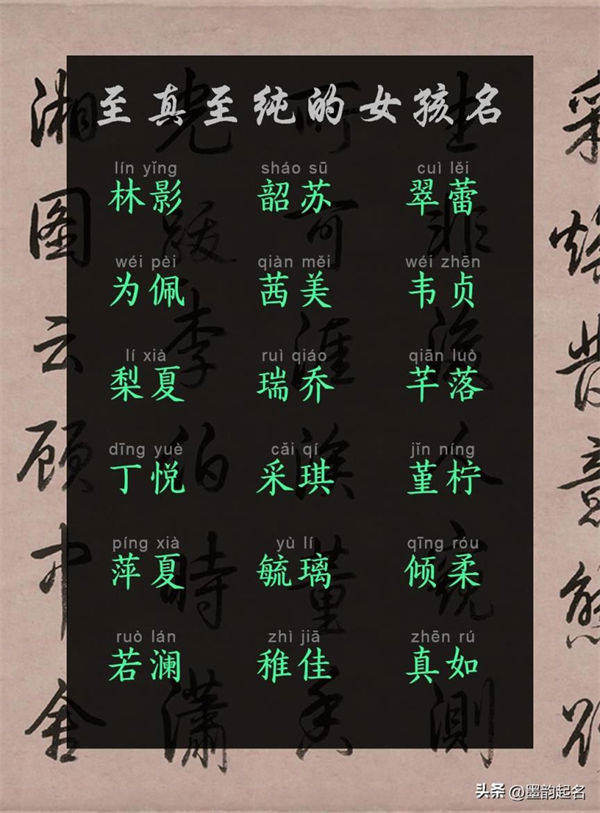 至真至纯的女孩名
lín yǐng sháo sū cuì lěi
林影 韶苏 翠蕾
wéi pèi qiàn měi wéi zhēn
为佩 茜美 韦贞
lí xià ruì qiáo qiān luò
梨夏 瑞乔 芊落
dīng yuè cǎi qí jǐn níng
丁悦 采琪 堇柠
píng xià yù lí qīng róu
萍夏 毓璃 倾柔
ruò lán zhì jiā zhēn rú
若澜 稚佳 真如
湘图云顾中金
时潇
头条 @墨韵起名